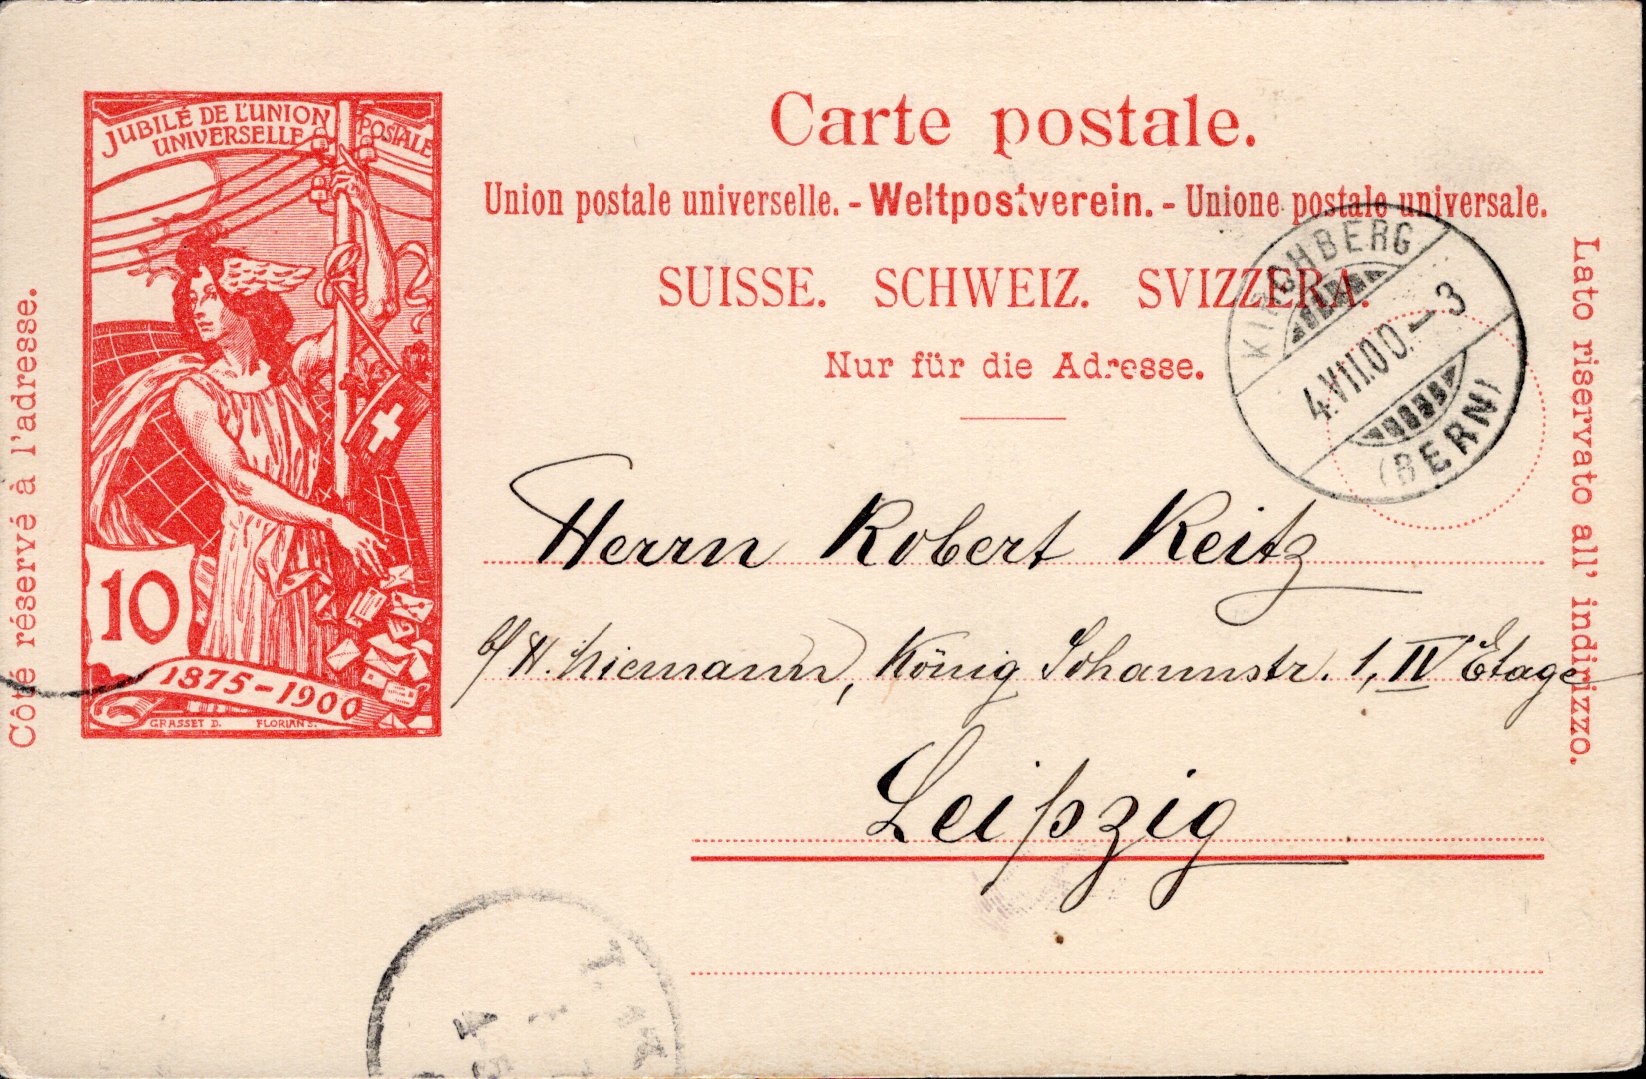 JUBILÉ DE L'UNION POSTALE
UNIVERSELLE
10
1875-1900
GRASSET D. FLORIAN S.
Côté réservé à l'adresse.
Carte postale.
Union postale universelle. - Weltpostverein. - Unione postale universale.
SUISSE. SCHWEIZ. SVIZZERA.
Nur für die Adresse.
KIRCHBERG
4.VII.00.-3
(BERN)
Lato riservato all' indirizzo.
Herrn Robert Keitz
b/ H. Niemann, König Johannstr. 1, IV Etage
Leipzig